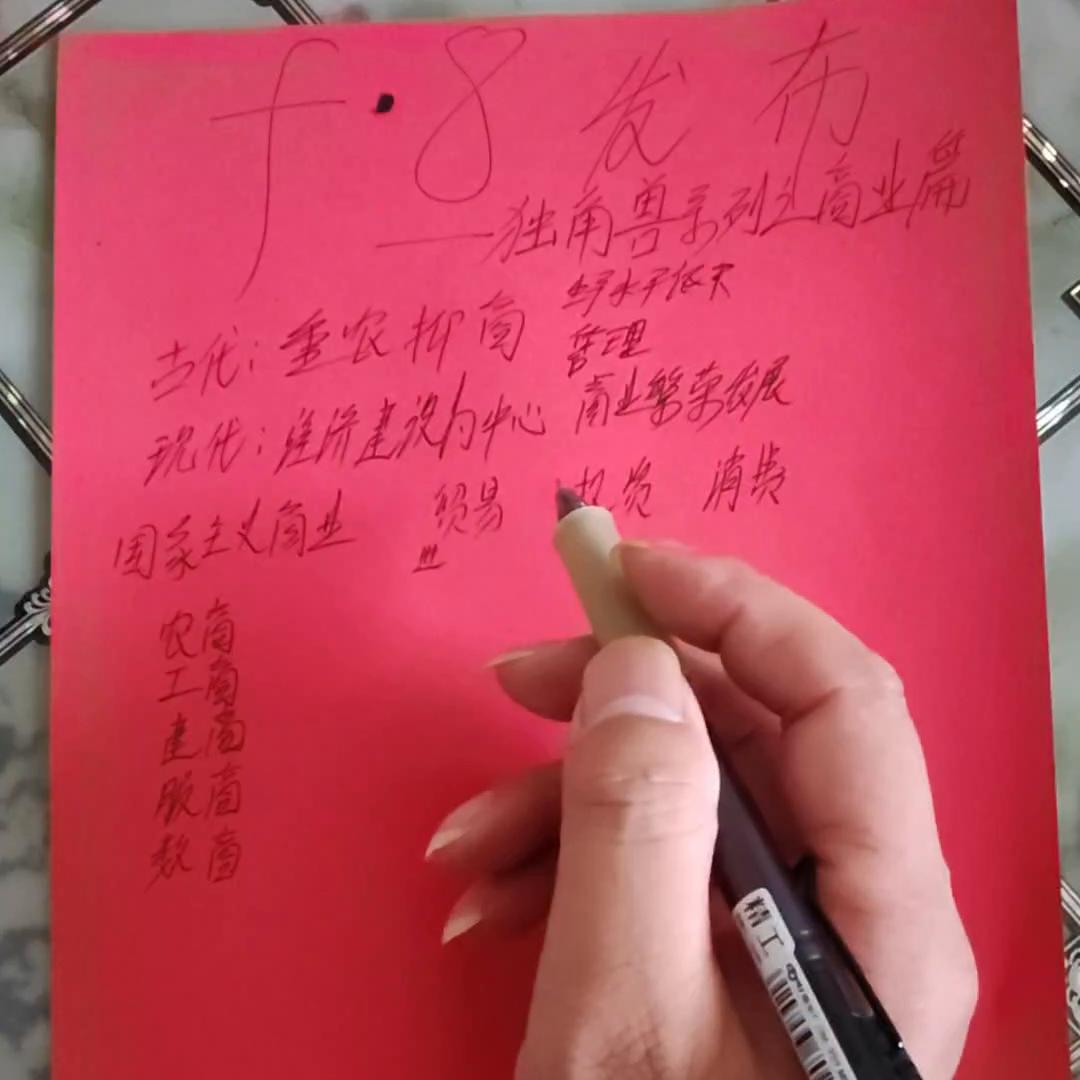 f·8发布
——独角兽系列之商业篇
古代：重农抑商 生产水平低下
管理
现代：经济建设为中心 商业繁荣发展
国家主义商业 贸易 投资 消费
农商
工商
建商
服商
数商
精工